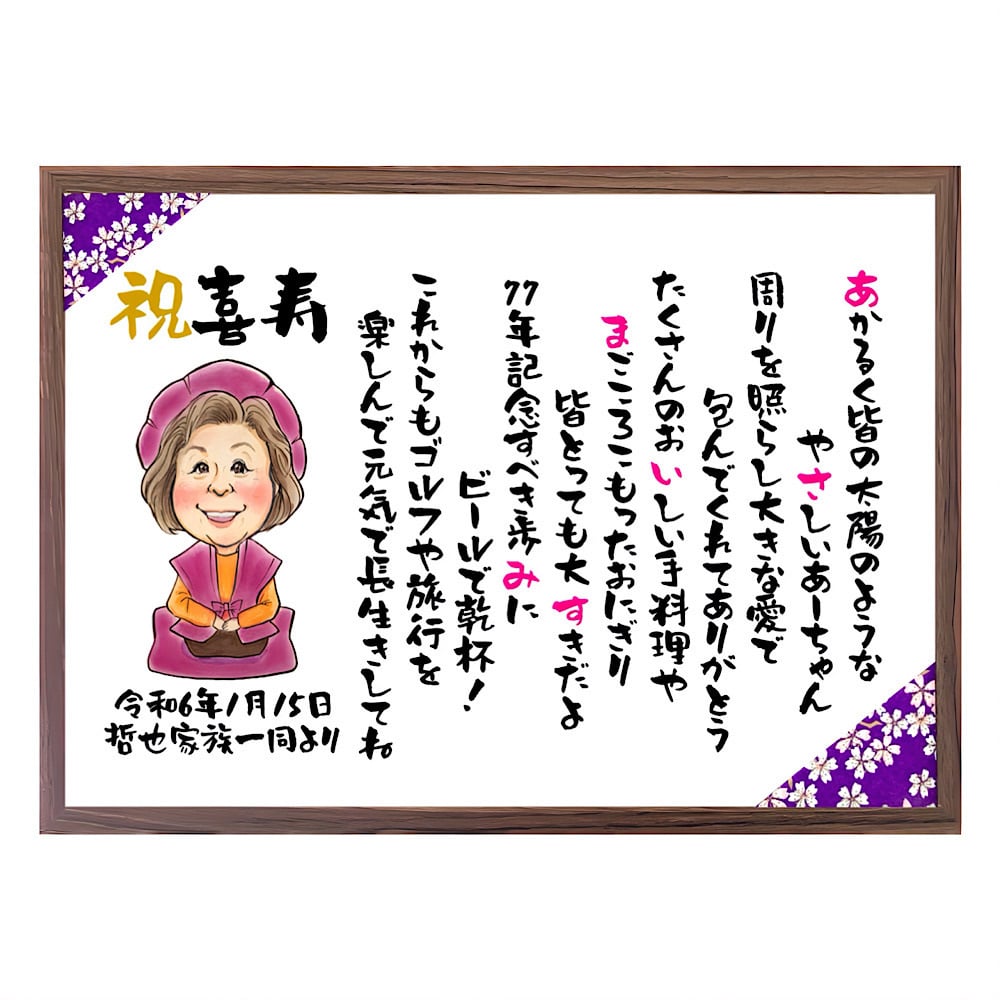 あかるく皆の太陽のような
やさしいあーちゃん
周りを照らし大きな愛で
包んでくれてありがとう
たくさんのおいしい手料理や
まごころこもったおにぎり
皆とっても大すきだよ
77年記念すべき歩みに
ビールで乾杯！
これからもゴルフや旅行を
楽しんで元気で長生きしてね
祝喜寿
令和6年1月15日
哲也家族一同より